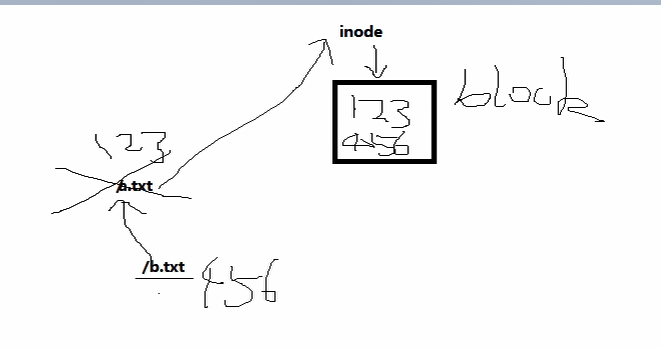 inode
123
456
block
123
/a.txt
/b.txt
456